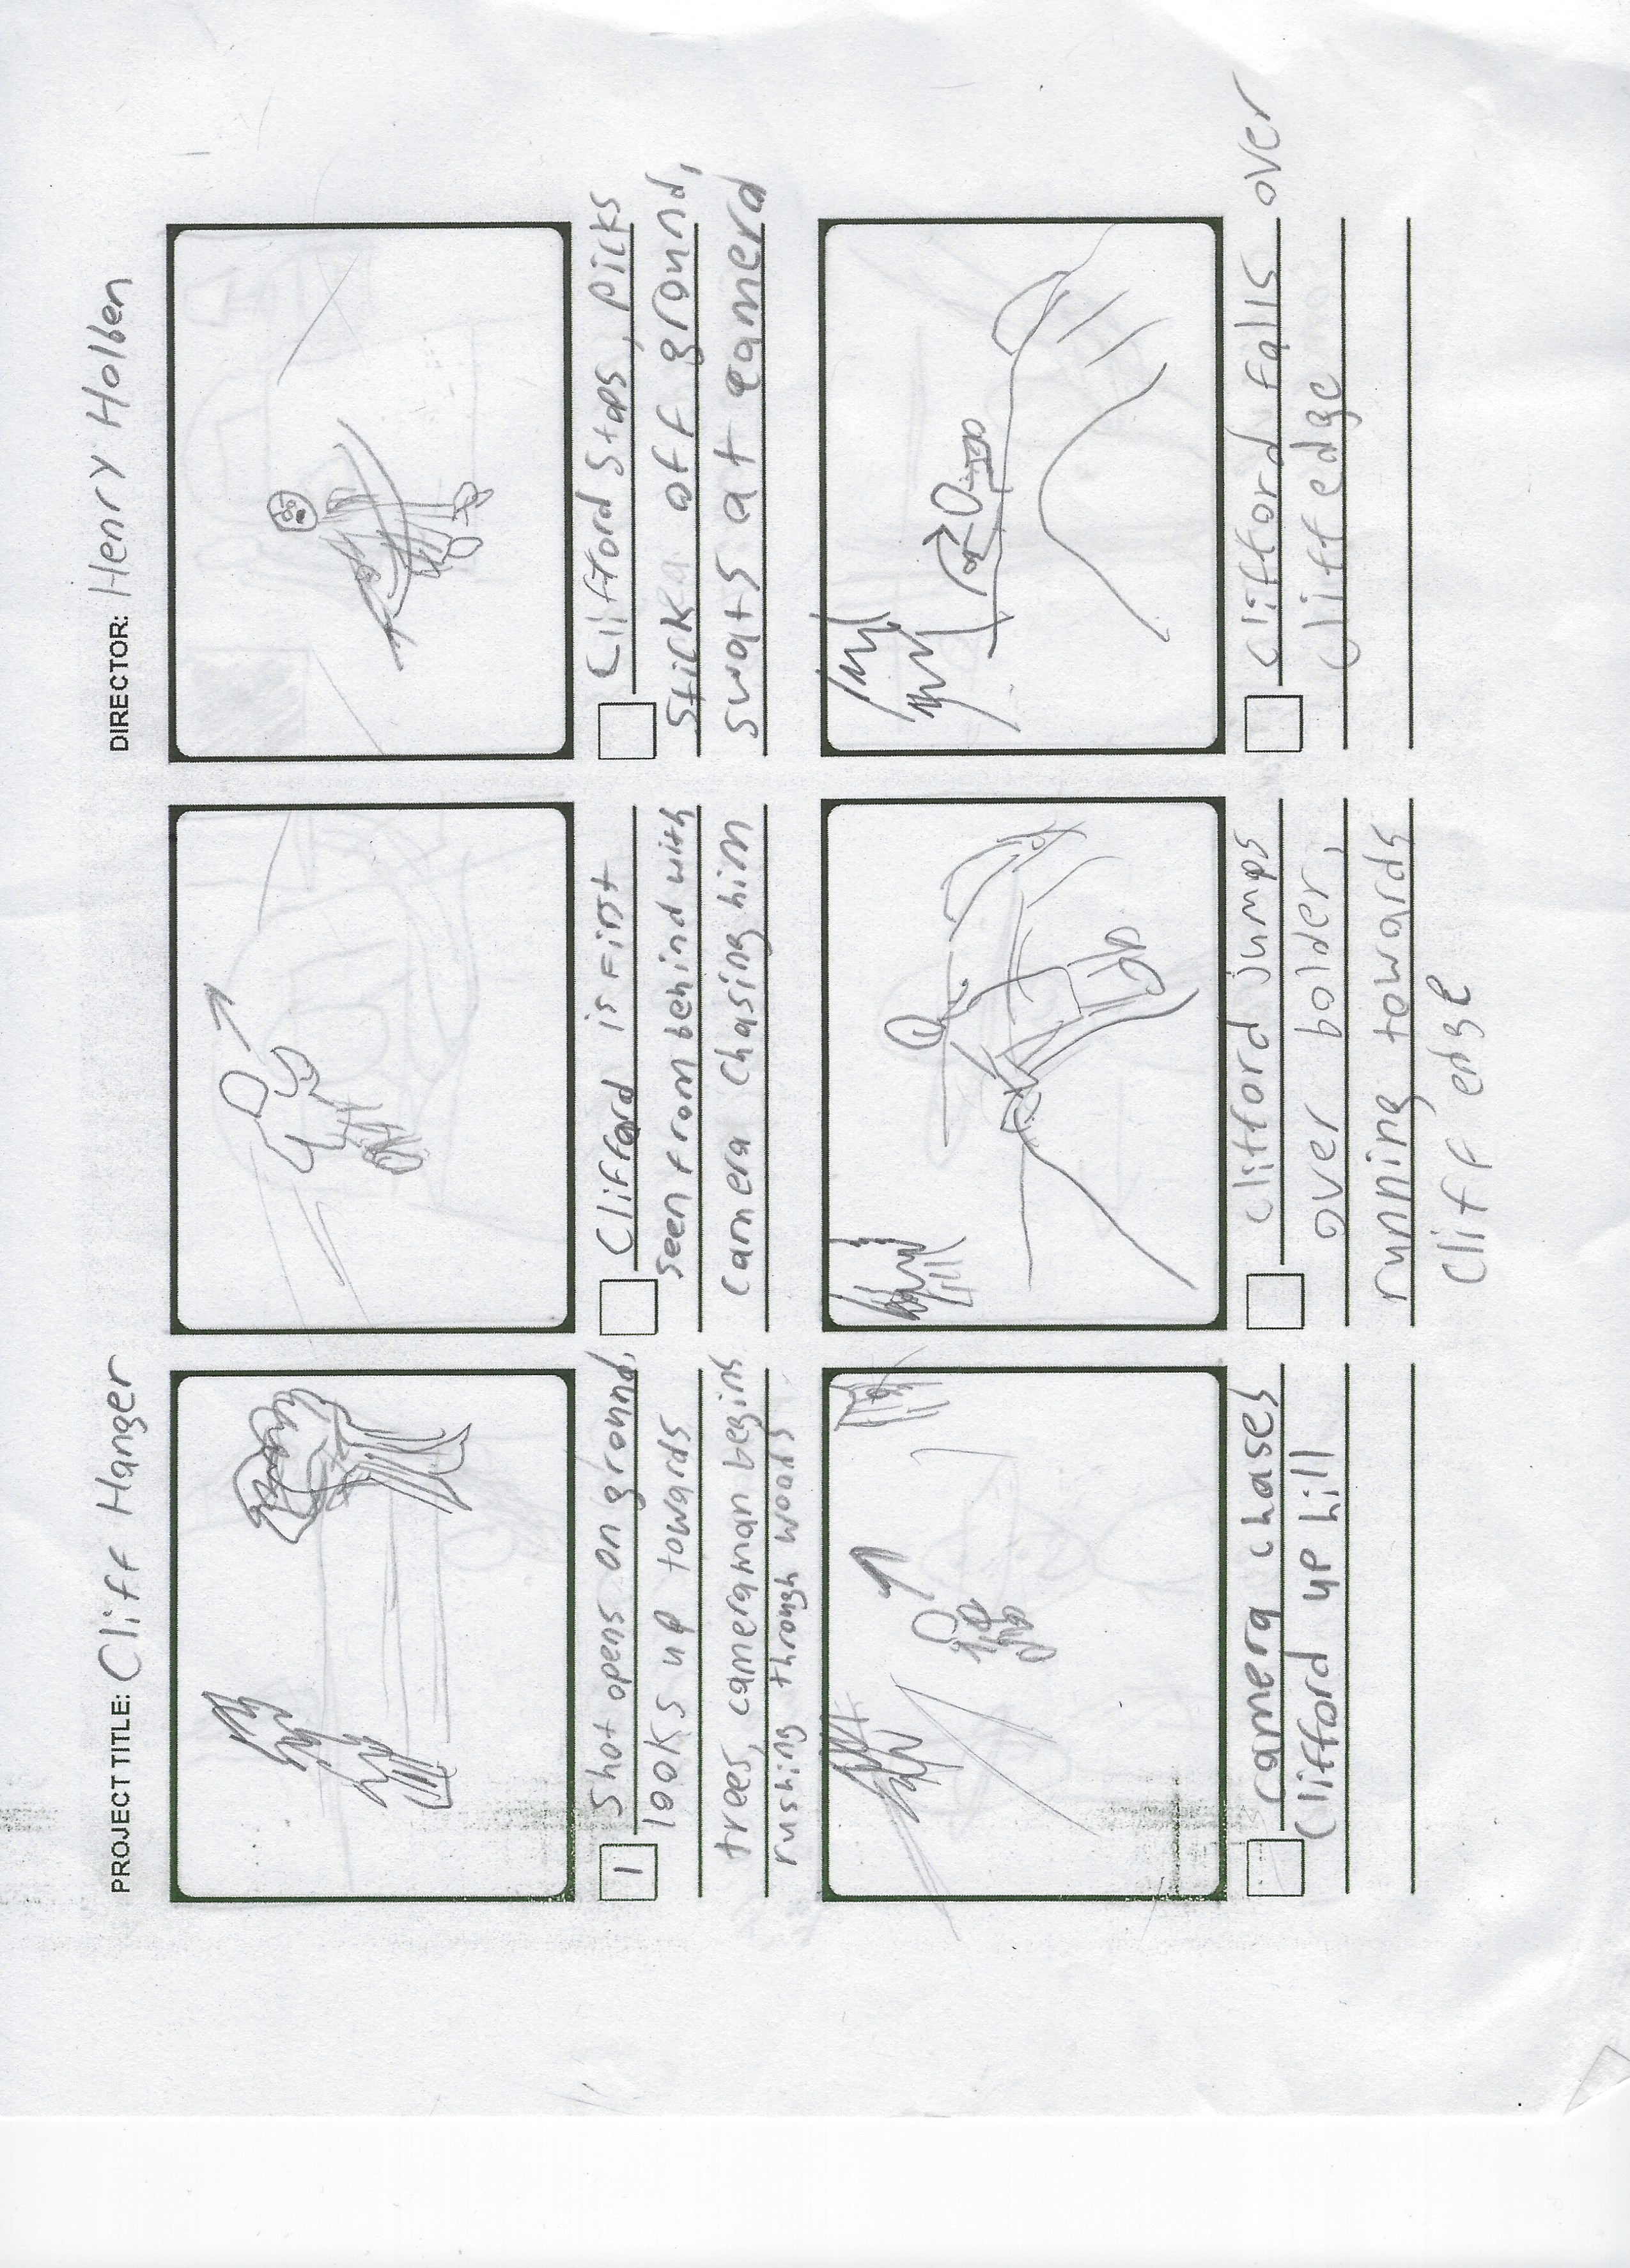 PROJECT TITLE: Cliff Hanger
DIRECTOR: Henry Holben
1
Shot opens on ground,
looks up towards
trees, cameraman begins
rushing through woods
Clifford is first
seen from behind with
camera chasing him
Clifford stops, picks
stick off ground,
swats at camera
camera chases
Clifford up hill
Clifford jumps
over bolder,
running towards
cliff edge
Clifford falls over
cliff edge